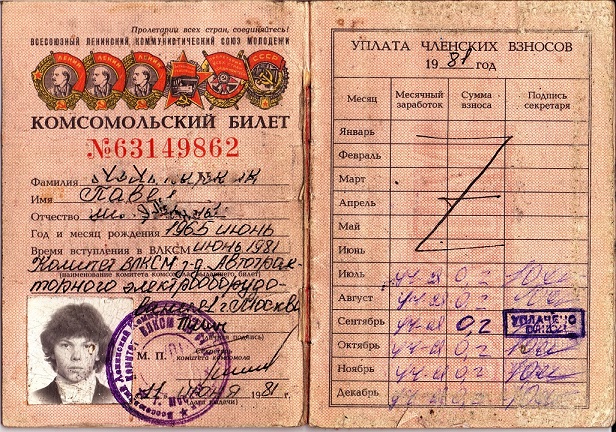 Пролетарии всех стран, соединяйтесь!
ВСЕСОЮЗНЫЙ ЛЕНИНСКИЙ КОММУНИСТИЧЕСКИЙ СОЮЗ МОЛОДЕЖИ
КОМСОМОЛЬСКИЙ БИЛЕТ
№63149862
Фамилия
Имя Павел
Отчество
Год и месяц рождения 1965 июнь
Время вступления в ВЛКСМ июнь 1981
Комитет ВЛКСМ з-д Автотрак-
(наименование комитета комсомола, выдавшего билет)
торного электрооборудо-
вания г. Москва
(личная подпись)
М. П.
Секретарь
комитета комсомола
июня 1981 г.
(дата выдачи)
УПЛАТА ЧЛЕНСКИХ ВЗНОСОВ
1981 год
Месяц Месячный заработок Сумма взноса Подпись секретаря
Январь
Февраль
Март
Апрель
Май
Июнь
Июль уч-ся 0 2
Август уч-ся 0 2
Сентябрь уч-ся 0,2 УПЛАЧЕНО
Октябрь уч-ся 0 2
Ноябрь уч-ся 0 2
Декабрь уч-ся 0 2